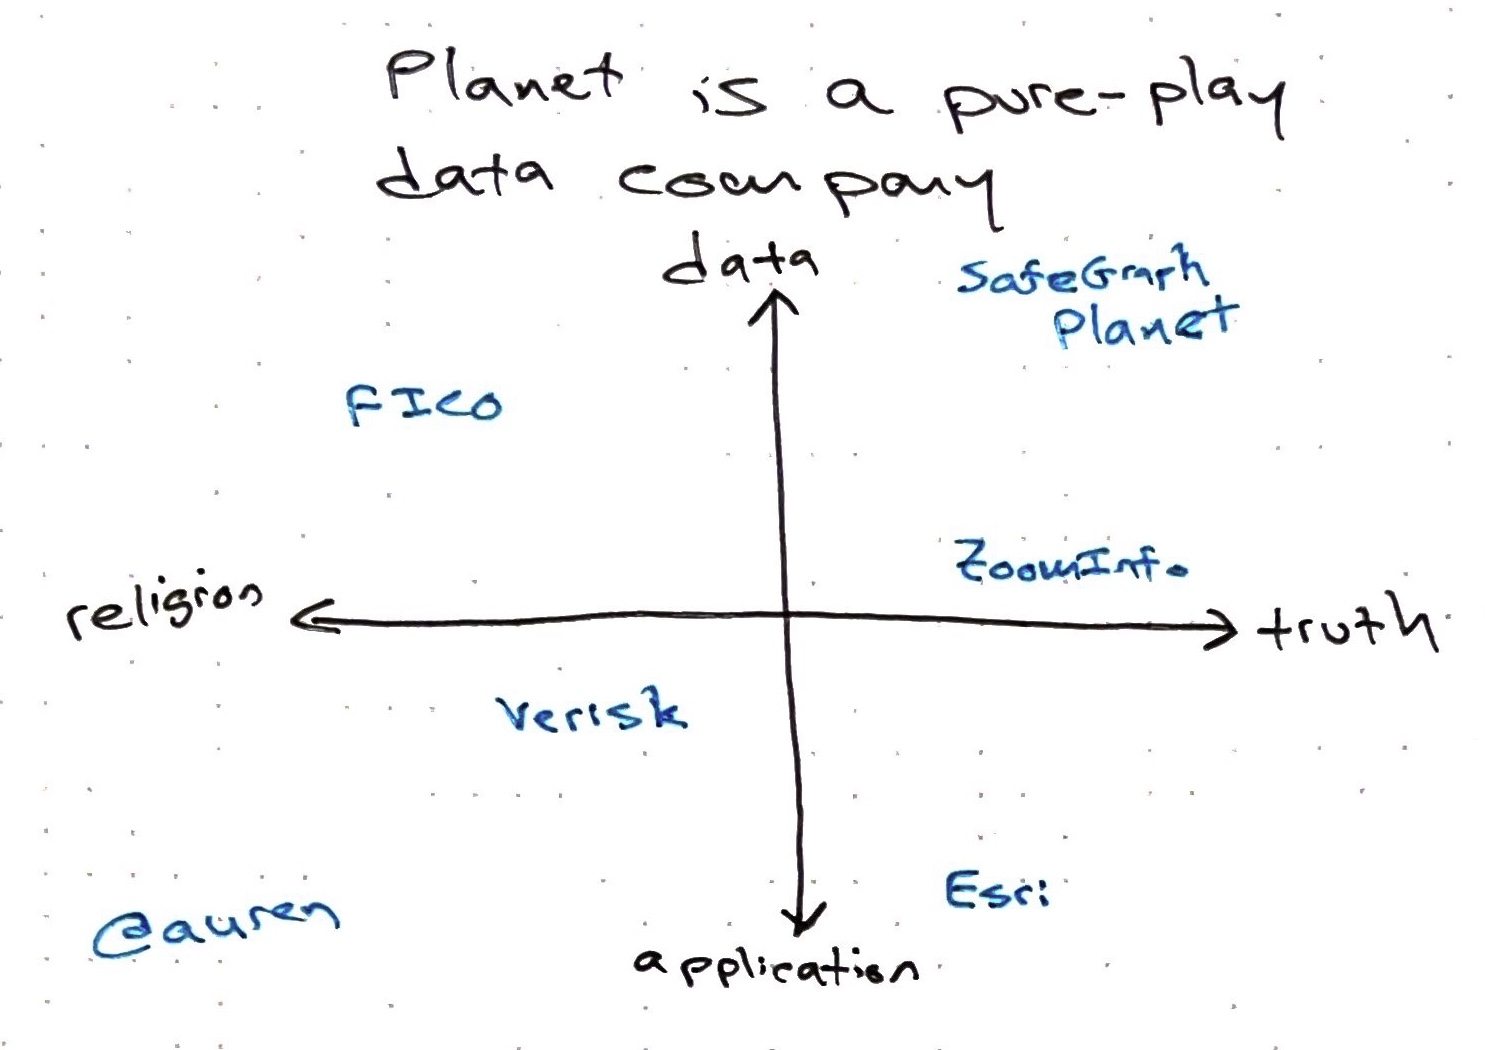 Planet is a pure-play
data company
data
SafeGraph
Planet
FICO
ZoomInfo
religion
truth
Verisk
Esri
@auren
application